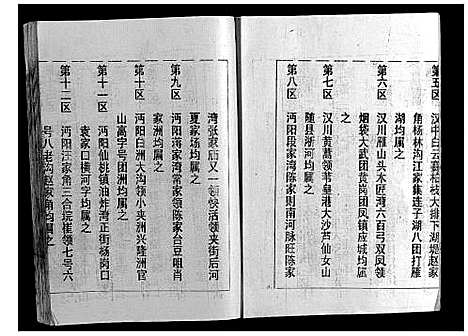 第五区　汉中白云
下湖堤赵家
角杨林沟江家集连子湖八团打雁
湖均属之
第六区　汉川雁山头木匠湾六百弓双凤领
烟袋大武团黄岗团凤镇应城均属
之
第七区　汉川黄蒿领芳皇港大沙芦仙女山
随县浙河均属之
第八区　沔阳段家湾陈家则南河脉旺陈家
湾张家庙又一领快活领夹街后河
夏家场均属之
第九区　沔阳蒋家湾常家领陈家台豆咀肖
家洲均属之
第十区　沔阳白洲大沟领小夹洲兴隆洲官
山高字号团洲均属之
第十一区　沔阳仙桃镇油炸湾正街杨岗口
袁家口横河字均属之
第十二区　沔阳汪家角三合垸崔领七号六
号八老沟赵家角均属之